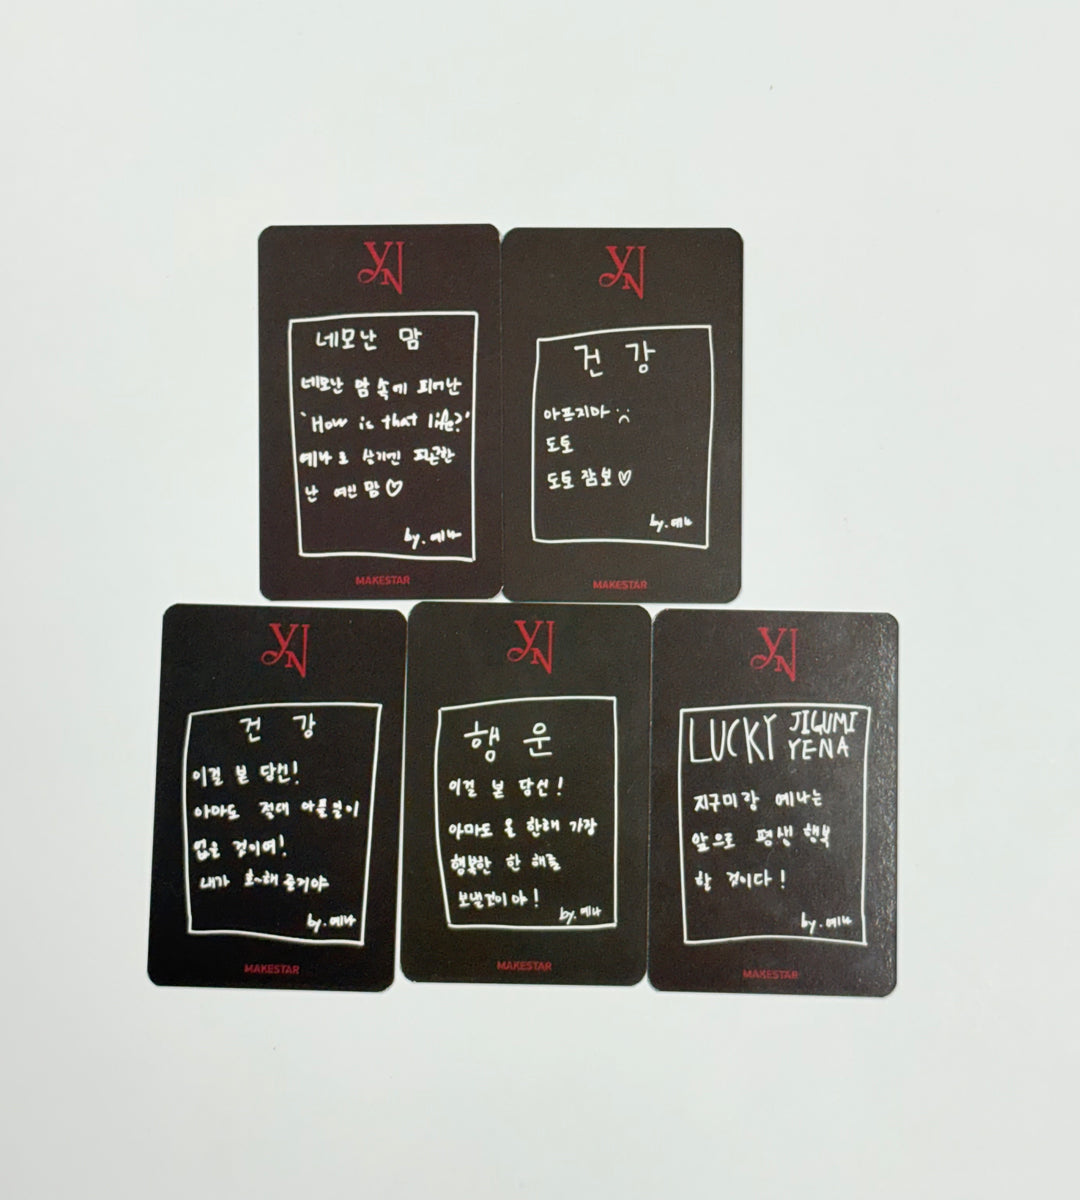 YN
네모난 맘
네모난 맘 속에 피어난
'How is that life?'
예나로 살기엔 피곤한
난 여린 맘♡
by. 예나
MAKESTAR
YN
건강
아프지마
도토
도토 잠보♡
by. 예나
MAKESTAR
YN
건강
이걸 본 당신!
아마도 절대 아플일이
없을 것이여!
내가 호~해줄거야
by. 예나
MAKESTAR
YN
행운
이걸 본 당신!
아마도 올 한해 가장
행복한 한 해를
보낼것이야!
by. 예나
MAKESTAR
YN
LUCKY JIGUMI YENA
지구미랑 예나는
앞으로 평생 행복
할 것이다!
by. 예나
MAKESTAR